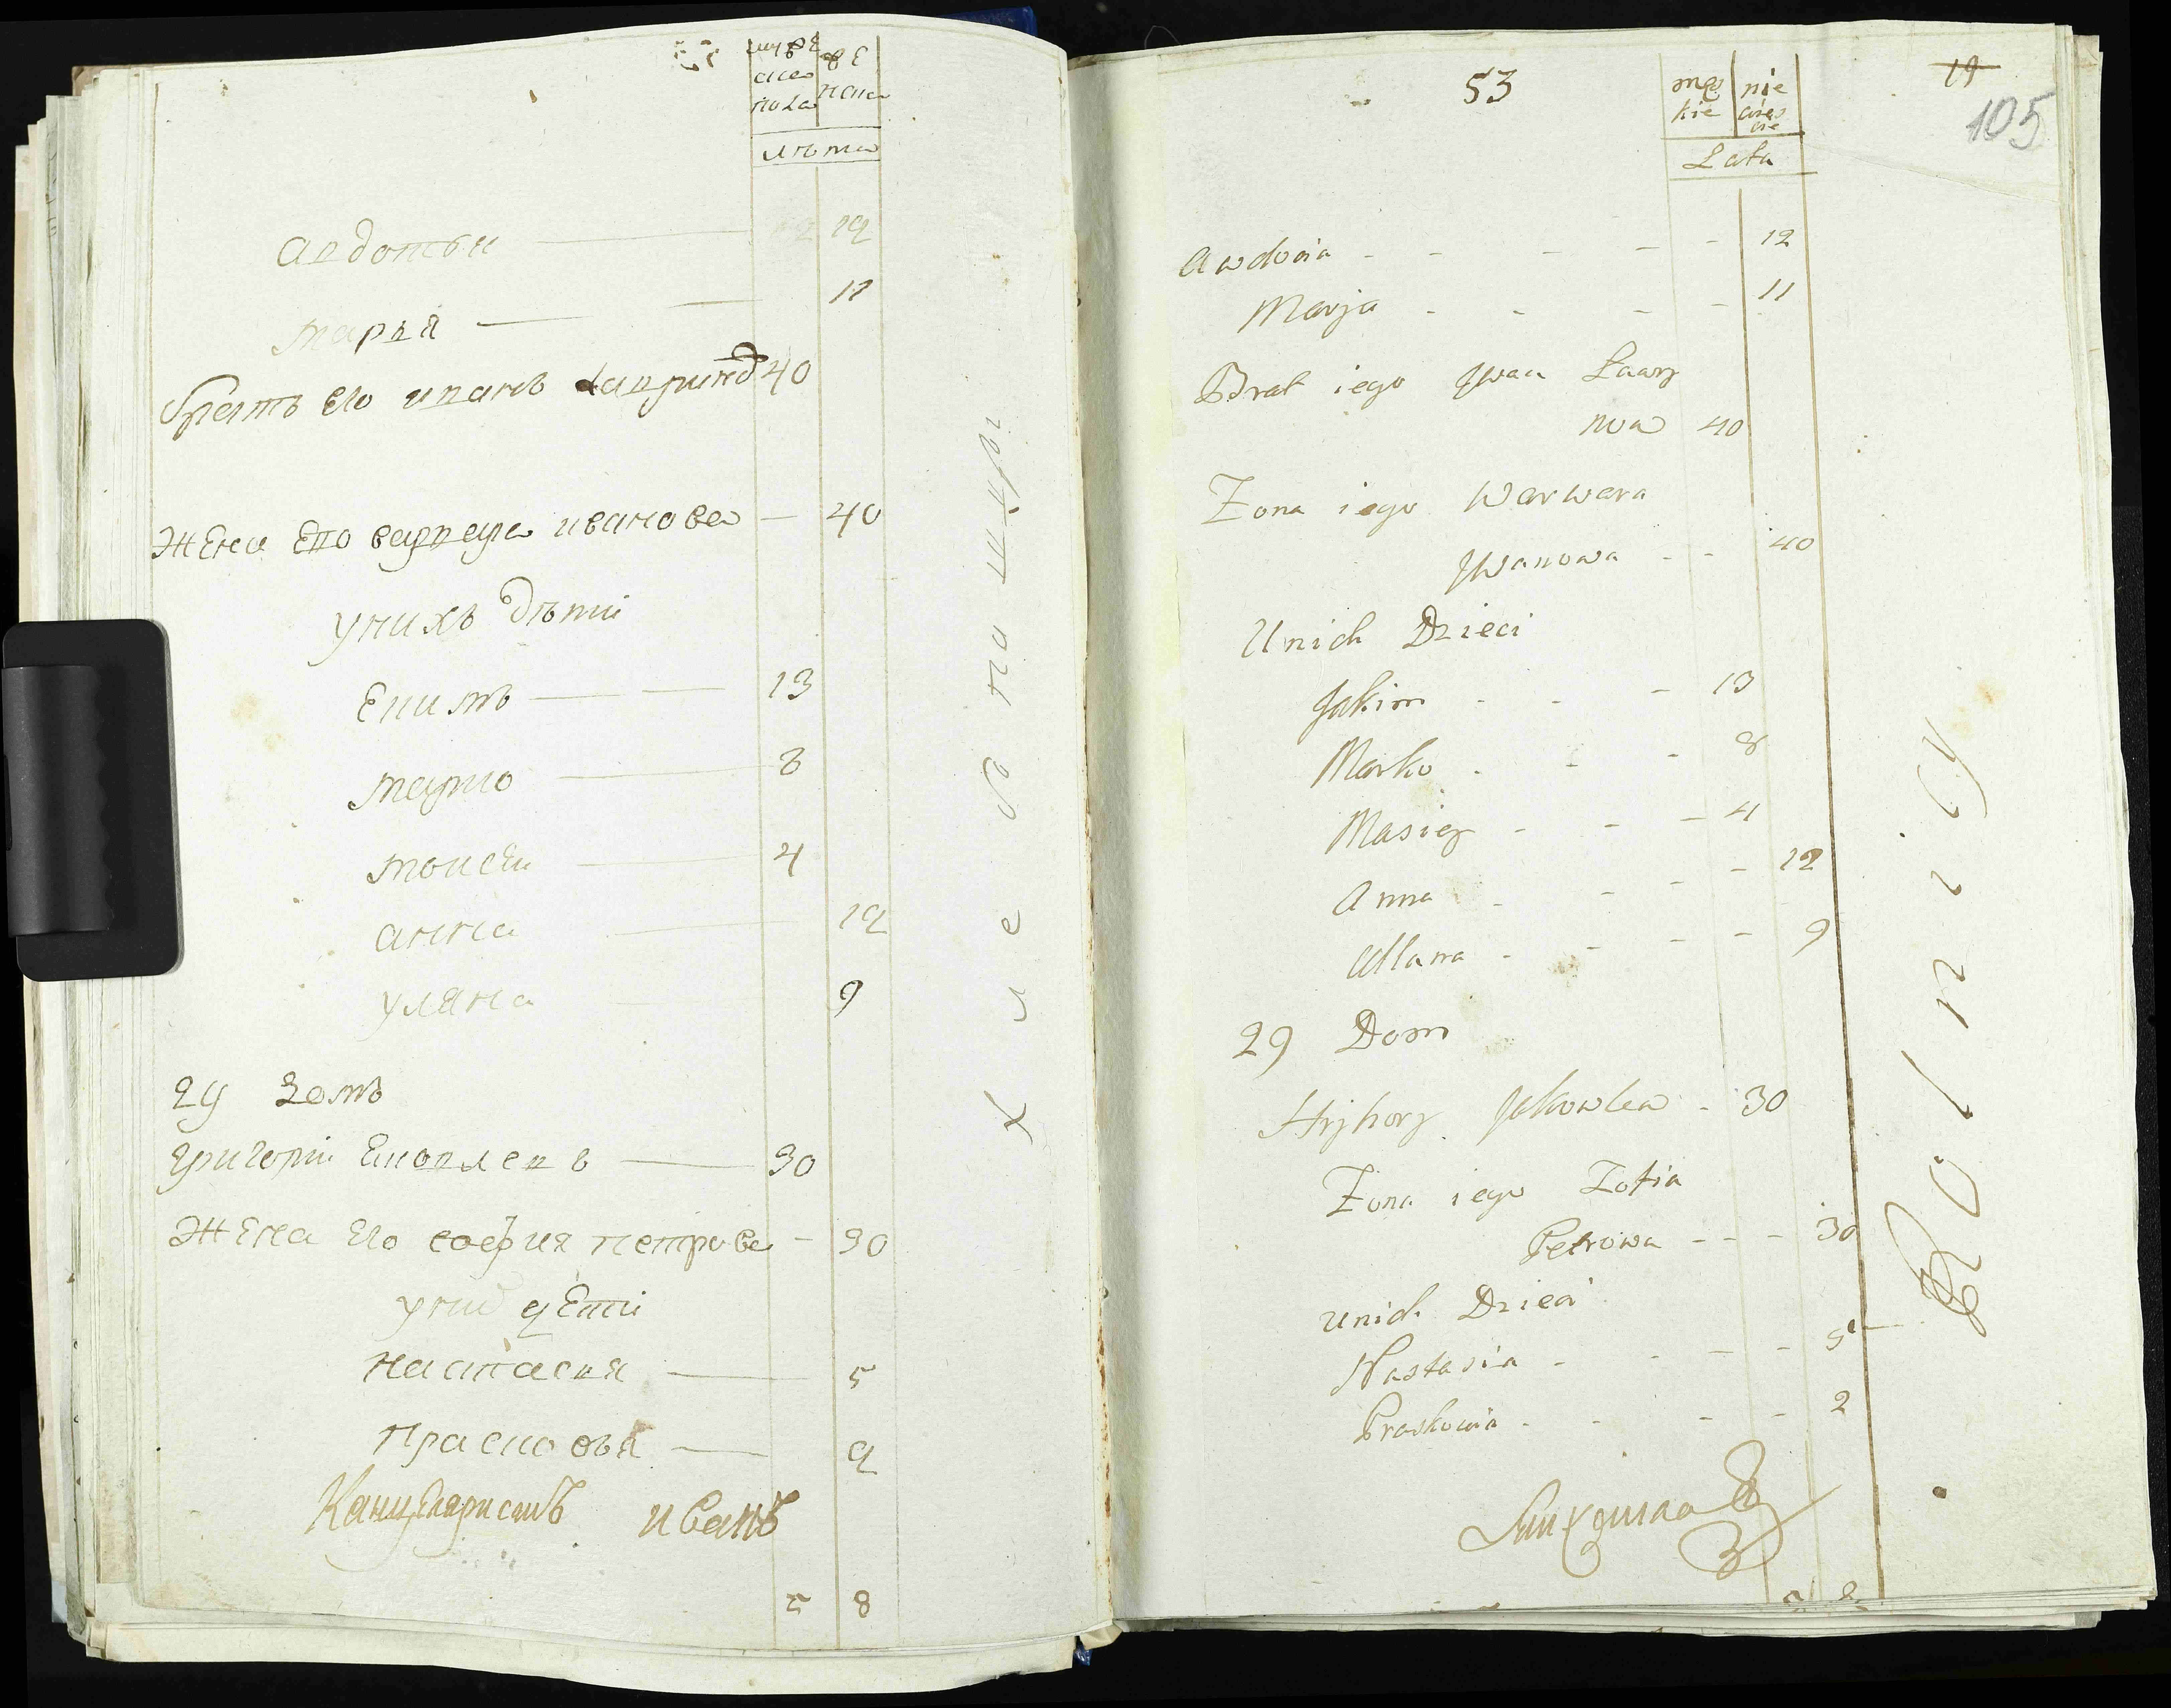 53
лѣта
авдотья 12
марья 11
братъ его иванъ 40
жена его варвара иванова 40
у нихъ дѣти
Екимъ 13
марко 8
моисеи 4
анна 12
уляна 9
29 домъ
григории Ековлевъ 30
жена его софия петрова 30
у них дети
настасья 5
прасковья 2
Канцеляристъ иванъ
5 8
хлебпашцы
53
męz kie
nie wies cie
19
105
Lata
Awdocia 12
Marja 11
Brat iego Jwan Lawry
nwa 40
Zona iego Warwara
Jwanowa 40
Unich Dzieci
Jakim 13
Marko 8
Masiey 4
Anna 12
Ullana 9
29 Dom
Hryhory Jakowlew 30
Zona iego Zofia
Petrowa 30
unich Dzieci
Nastasia 5
Praskowia 2
Rolnicy